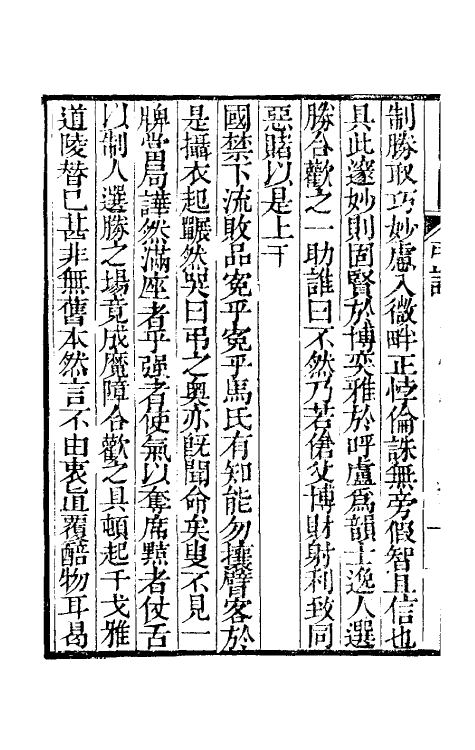 制勝取巧妙慮入微畔正悖倫誅無旁假智且信也
具此邃妙則固賢於博奕雅於呼盧爲韻士逸人選
勝合歡之一助誰曰不然乃若傖父博財射利致同
惡賭以是上干
國禁下流敗品寃乎寃乎馬氏有知能勿撞臂客於
是攝衣起囅然哭曰弔之奧亦旣聞命矣叟不見一
牌當局譁然滿座者乎强者使氣以奪席黠者仗舌
以制人選勝之場竟成魔障合歡之具頓起干戈雅
道陵替已甚非無舊本然言不由衷旨直覆醅物耳曷